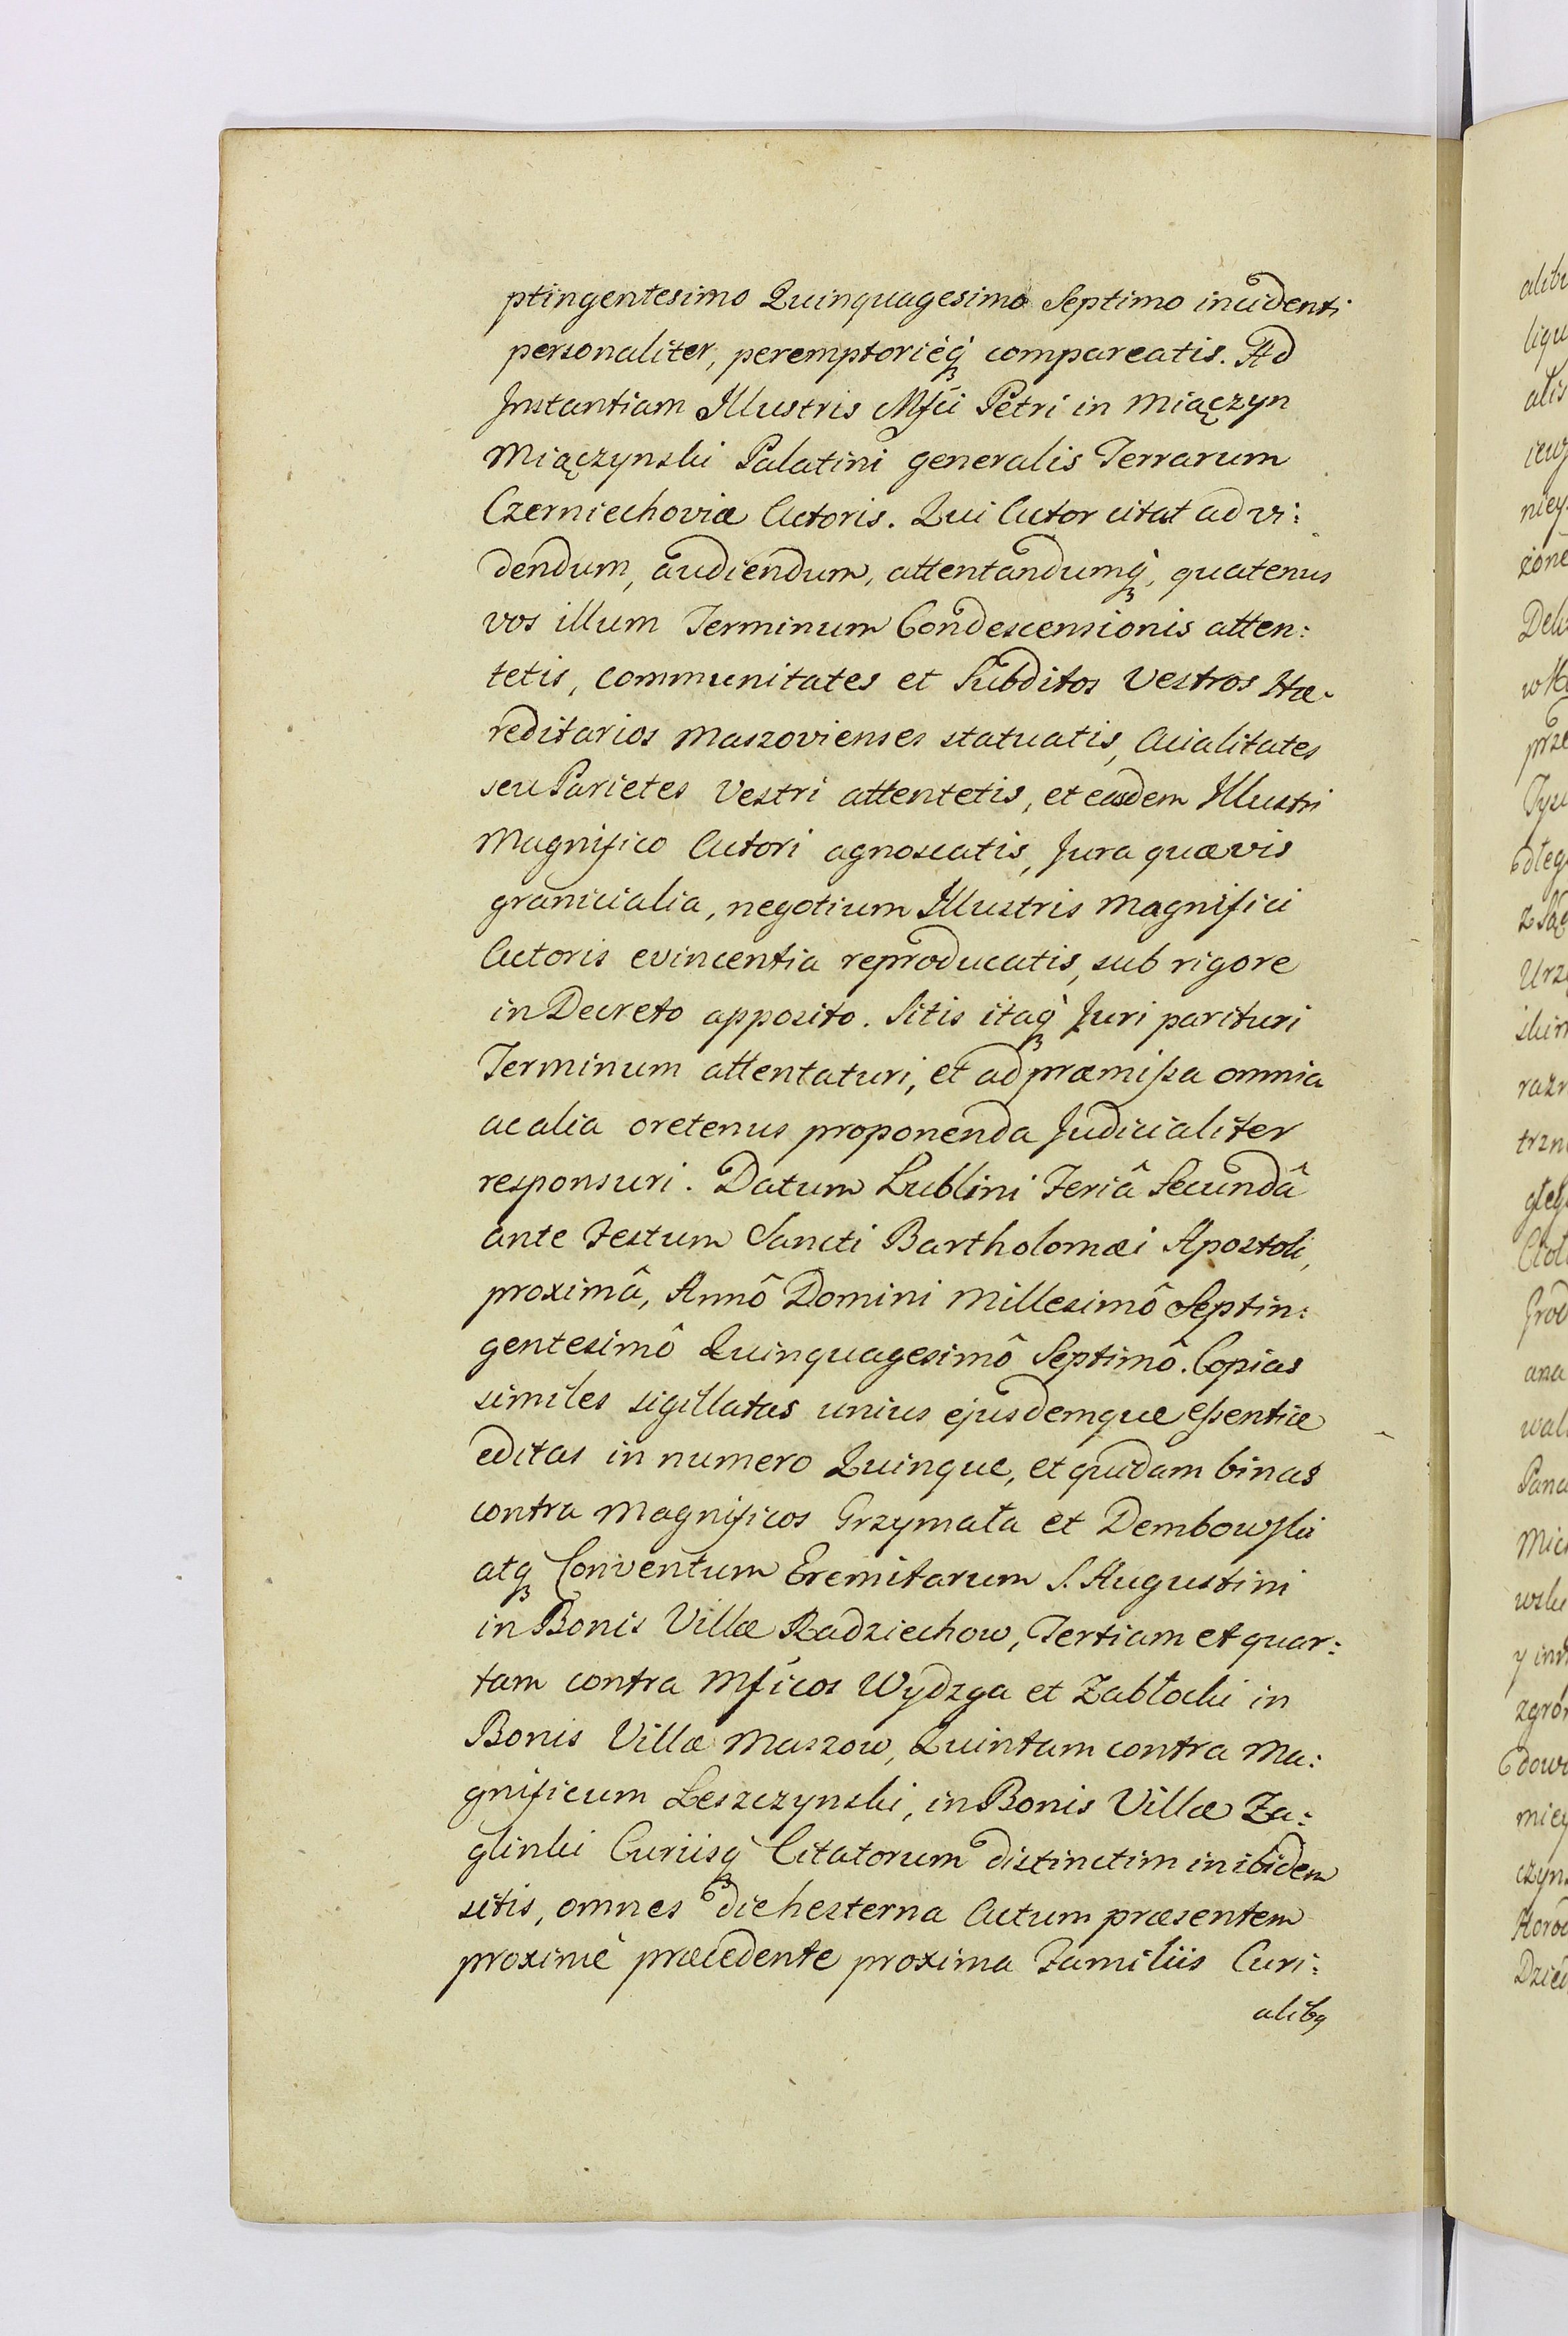 ptingentesimo Quinquagesimo Septimo incidenti
personaliter, peremptorieq́ꝫ compareatis. Ad
Instantiam Illustris Mfci Petri in Miączyn
Miączynski Palatini generalis Terrarum
Czerniechoviæ Actoris. Qui Actor citat ad vi:
dendum, audiendum, attentandumq́ꝫ, quatenus
vos illum Terminum Condescensionis atten:
tetis, communitates et Subditos Vestros Hæ-
reditarios Maszovienses statuatis, Acialitates
seu Parietes Vestri attentetis, et easdem Illustri
Magnifico Actori agnoscatis, Jura quævis
granicialia, negotium Illustris Magnifici
Actoris evincentia reproducatis, sub rigore
in Decreto apposito. Sitis itaq́ꝫ Juri parituri
Terminum attentaturi, et ad præmißa omnia
ac alia oretenus proponenda Judicialiter
responsuri. Datum Lublini Feriâ Secundâ
ante Festum Sancti Bartholomæi Apostoli,
proximâ, Annô Domini Millesimô Septin:
gentesimô Quinquagesimô Septimô. Copias
similes sigillatas unius ejusdemque eßentiæ
editas in numero Quinque, et quidam binas
contra Magnificos Grzymała et Dembowski
atqꝫ Conventum Eremitarum S. Augustini
in Bonis Villæ Radziechow, Tertiam et quar:
tam contra Mfícos Wydzga et Zabłocki in
Bonis Villæ Maszow, Quintam contra Ma:
gnificum Leszczynski, in Bonis Villæ Za:
glinki Curiisq́ꝫ Citatorum distinctim inibidem
sitis, omnes die hesterna Actum præsentem
proximè præcedente proxima Familiis Curi:
alibq